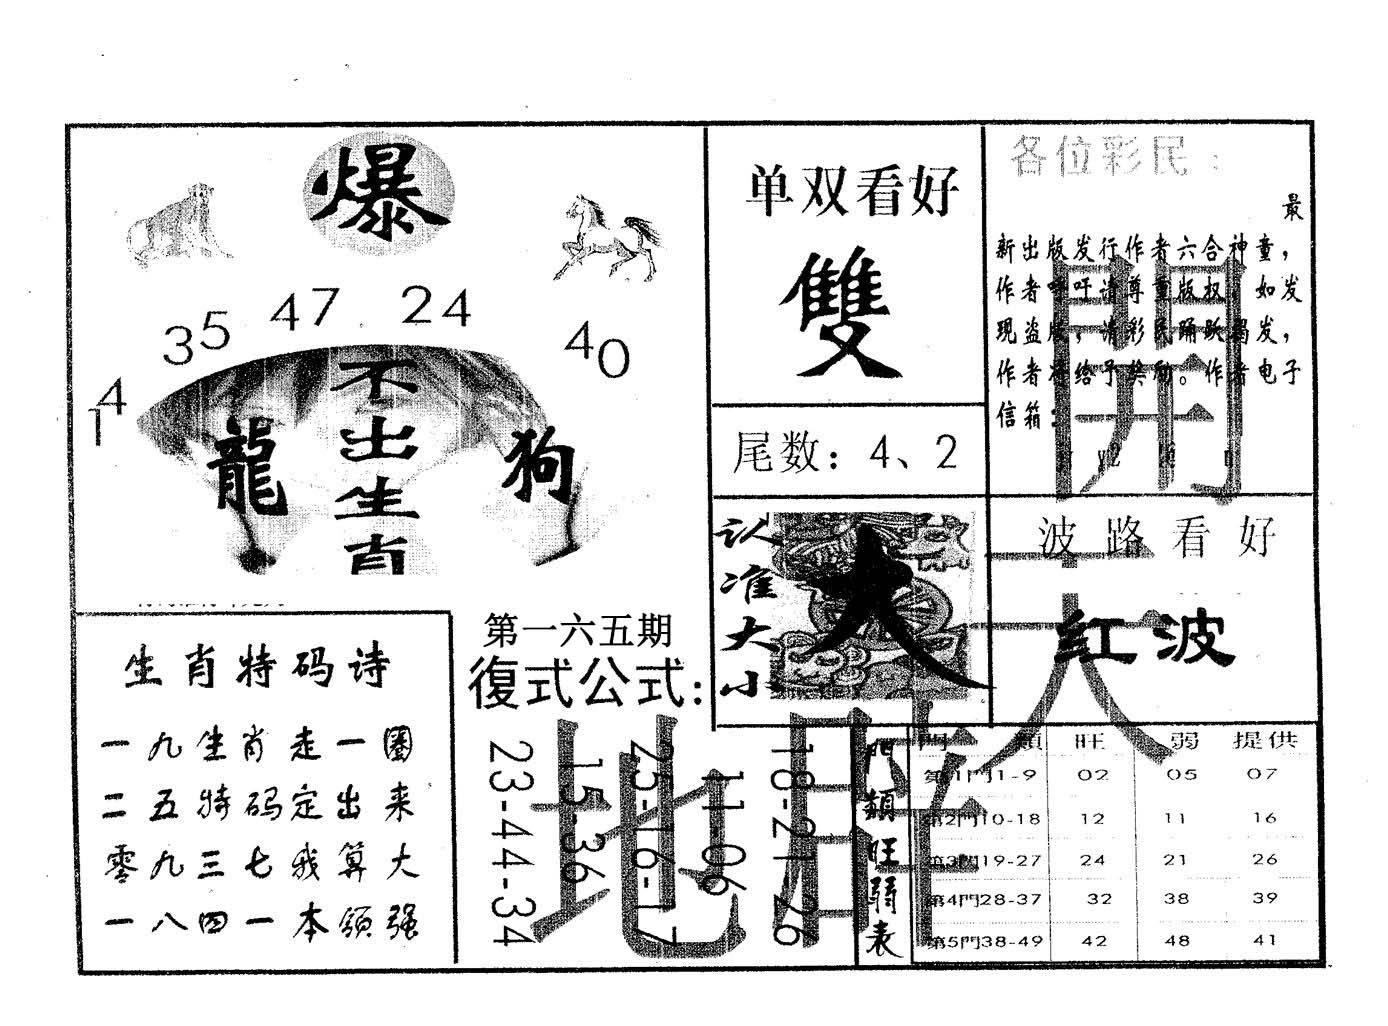 爆
14
35
47
24
40
龍
不出生肖
狗
单双看好
雙
尾数：4、2
认准大小
大
各位彩民：
最
新出版发行作者六合神童，
作者呼吁请尊重版权，如发
现盗版，请彩民踊跃揭发，
作者将给予奖励。作者电子
信箱：
開
波路看好
红波
生肖特码诗
一九生肖走一圈
二五特码定出来
零九三七我算大
一八四一本领强
第一六五期
復式公式：
23-44-34
15-36
25-16-17
11-06
18-21-26
地
門類旺弱表
門類 旺 弱 提供
第1門1-9 02 05 07
第2門10-18 12 11 16
第3門19-27 24 21 26
第4門28-37 32 38 39
第5門38-49 42 48 41